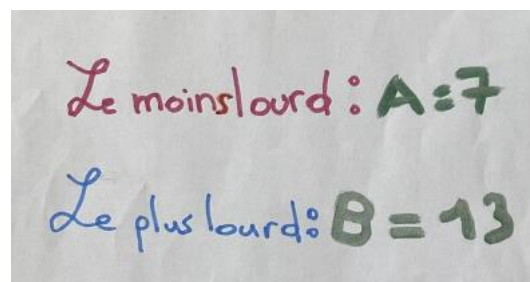 Le moins lourd : A = 7
Le plus lourd : B = 13